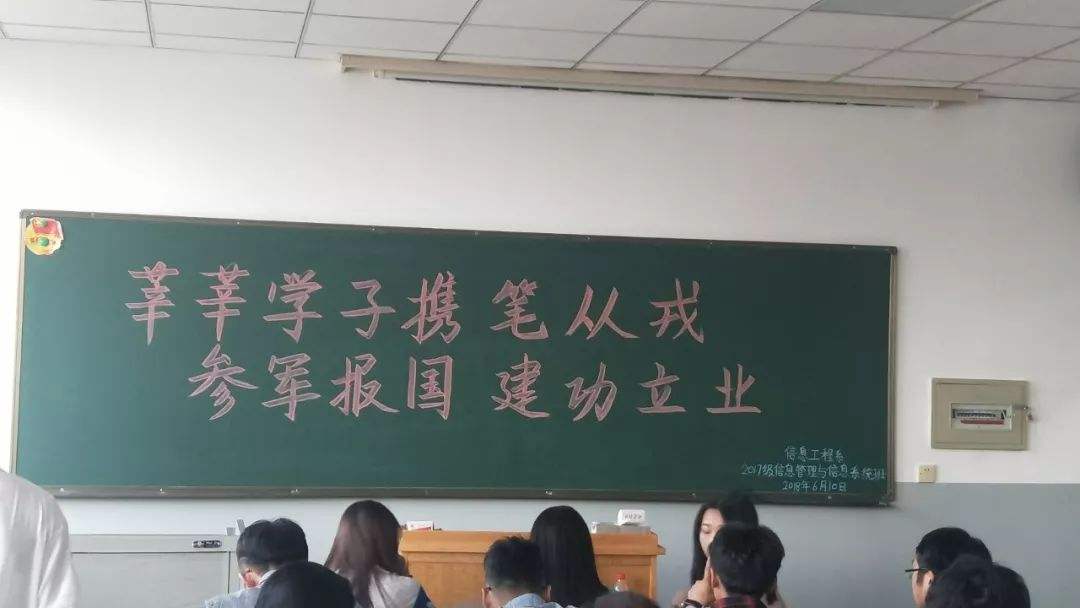 莘莘学子携笔从戎
参军报国 建功立业
信息工程系
2017级信息管理与信息系统班
2018年6月10日